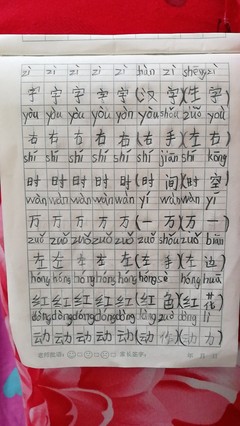 zì zì zì zì zì hàn zì shēng zì
字 字 字 字 字 (汉 字)(生 字)
yòu yòu yòu yòu yòu yòu shǒu zuǒ yòu
右 右 右 右 右 (右 手)(左 右)
shí shí shí shí shí shí jiān shí kōng
时 时 时 时 时 (时 间)(时 空)
wàn wàn wàn wàn wàn yí wàn wàn yī
万 万 万 万 万 (一 万)(万 一)
zuǒ zuǒ zuǒ zuǒ zuǒ zuǒ shǒu zuǒ biān
左 左 左 左 左 (左 手)(左 边)
hóng hóng hóng hóng hóng hóng sè hóng huā
红 红 红 红 红 (红 色)(红 花)
dòng dòng dòng dòng dòng dòng zuò dòng lì
动 动 动 动 动 (动 作)(动 力)
老师批语: 家长签字: 年 月 日